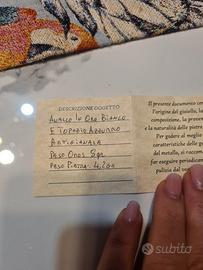 DESCRIZIONE OGGETTO
ANELLO IN ORO BIANCO
E TOPAZIO AZZURRO
ARTIGIANALE
PESO ORO: 8gr
PESO PIETRA
Il presente documento con
l'origine del gioiello, la
composizione, la presen
e la naturalità delle pietre
Per godere al meglio
caratteristiche delle g
del metallo, si raccom
far eseguire periodicam
pulizia dal ven
subito